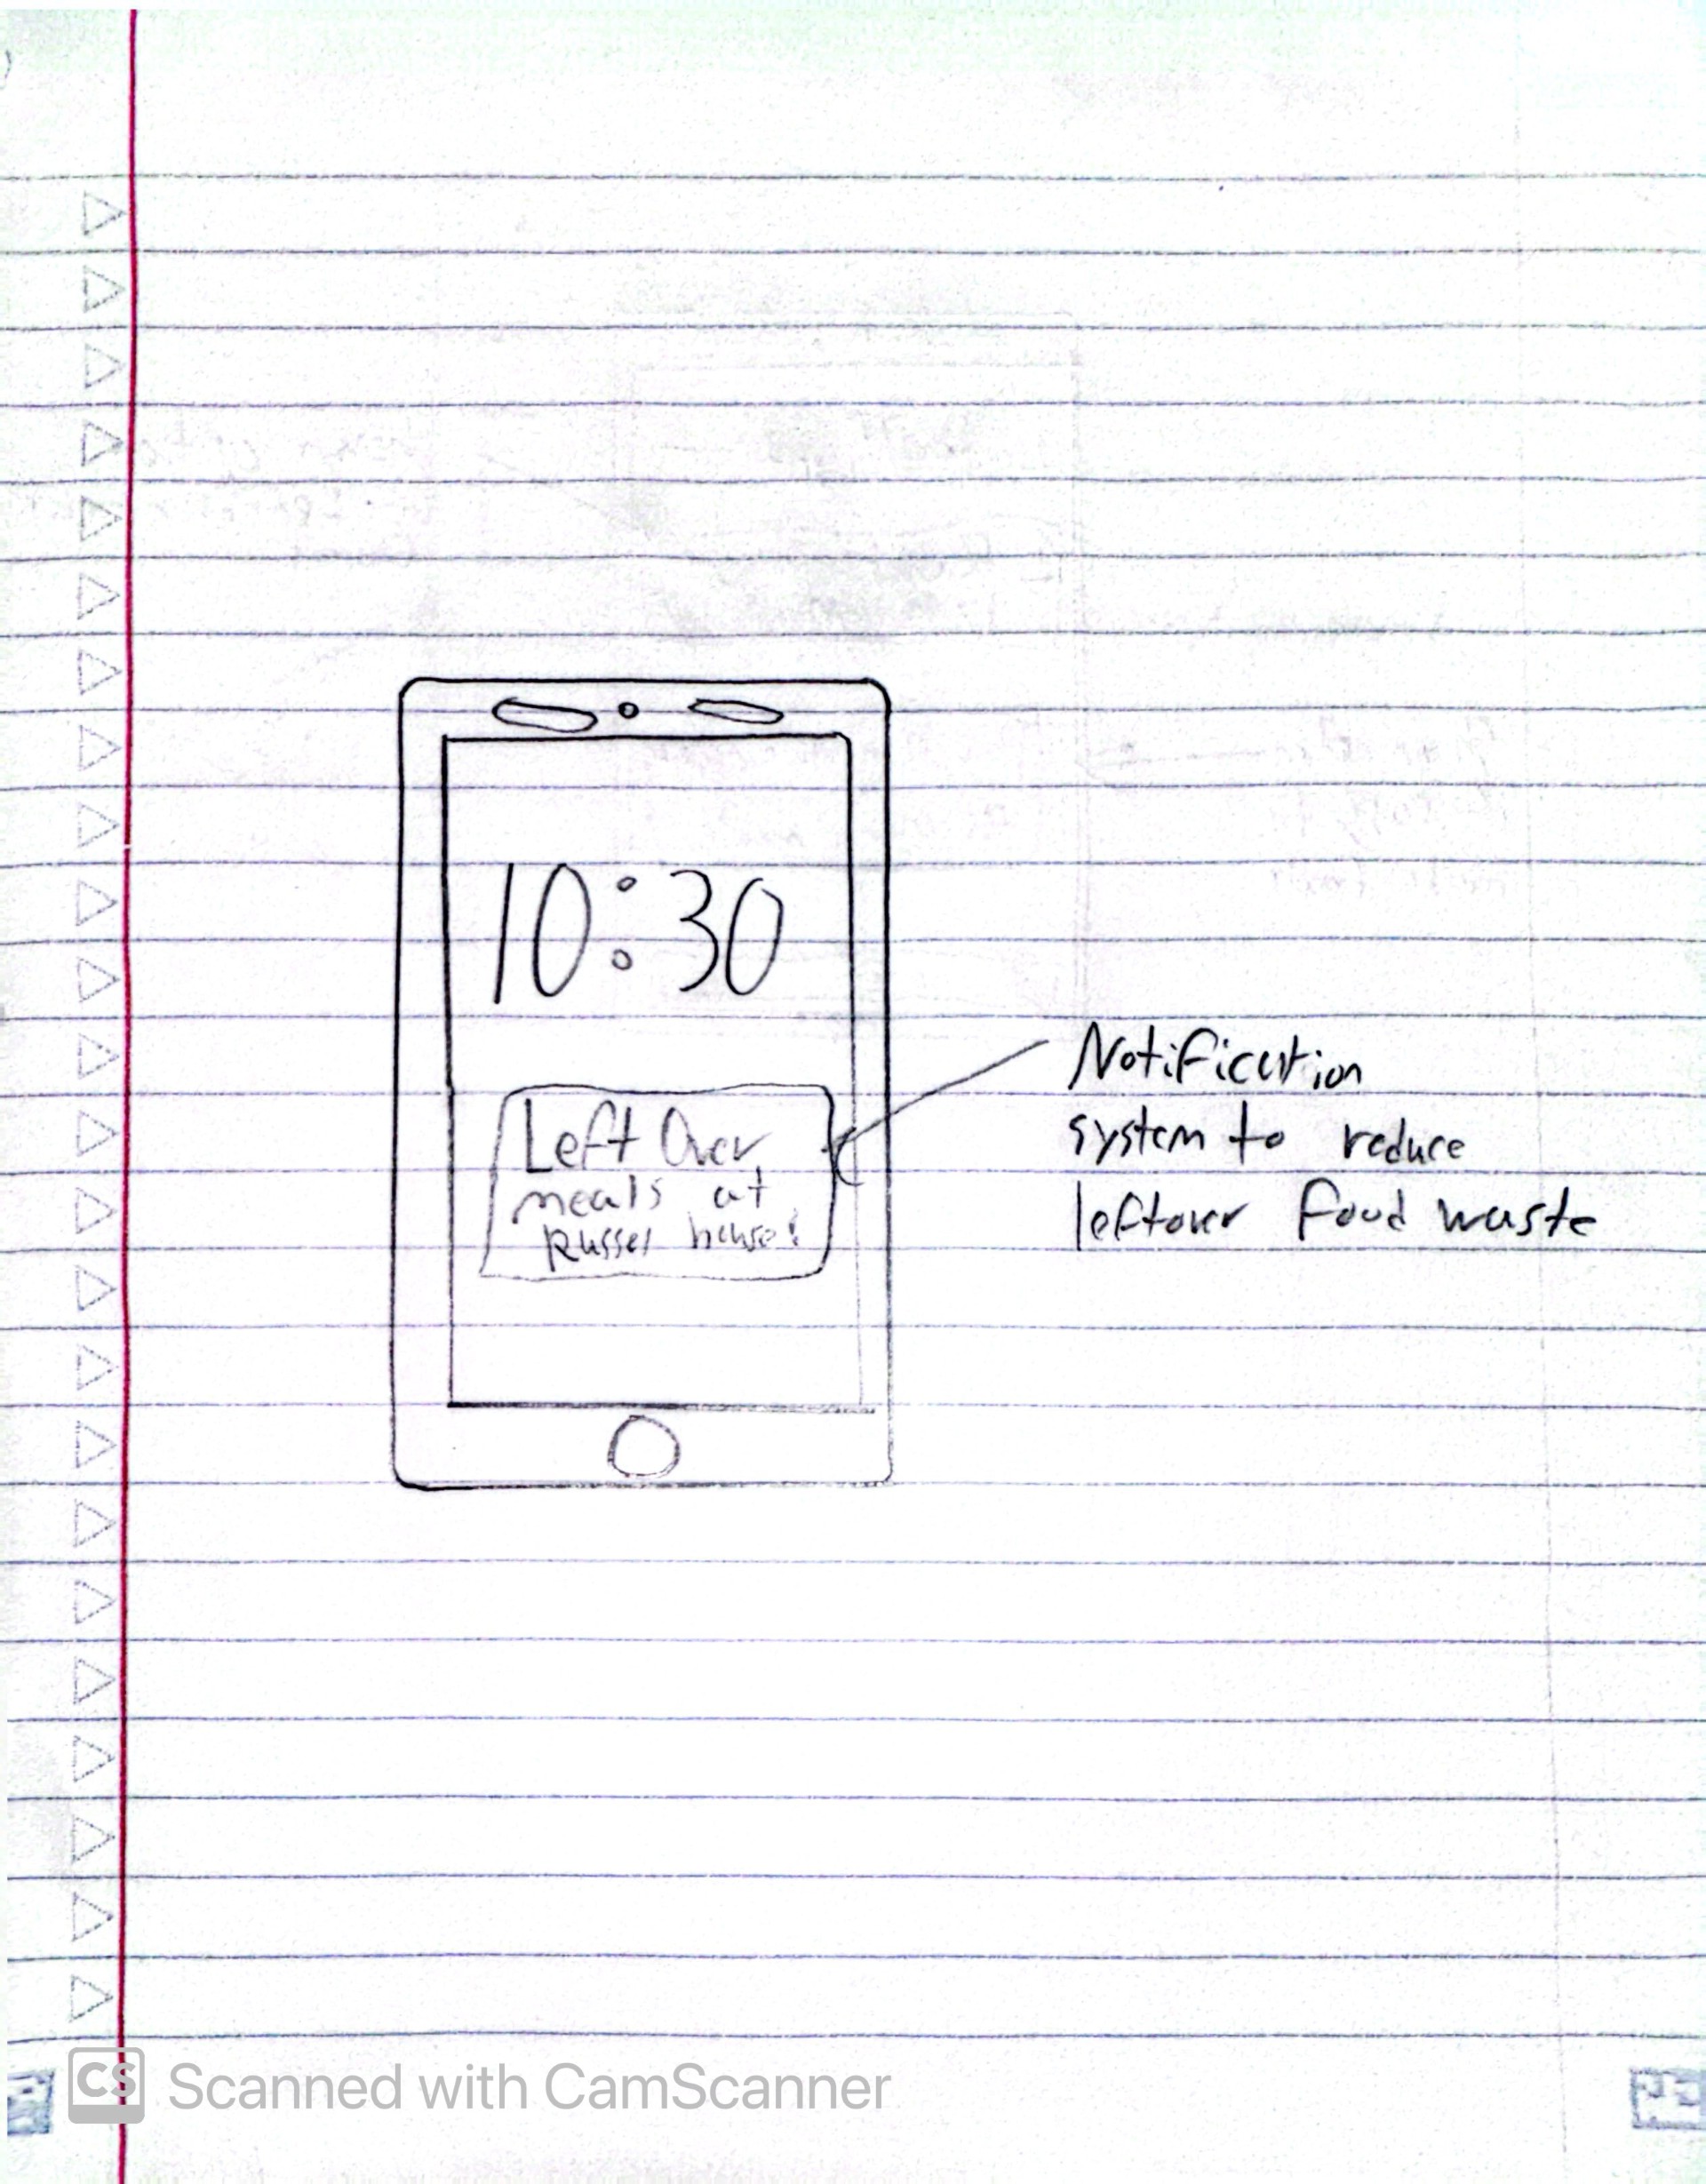 10:30
Left Over
meals at
Russel house!
Notification
system to reduce
leftover food waste
CS Scanned with CamScanner